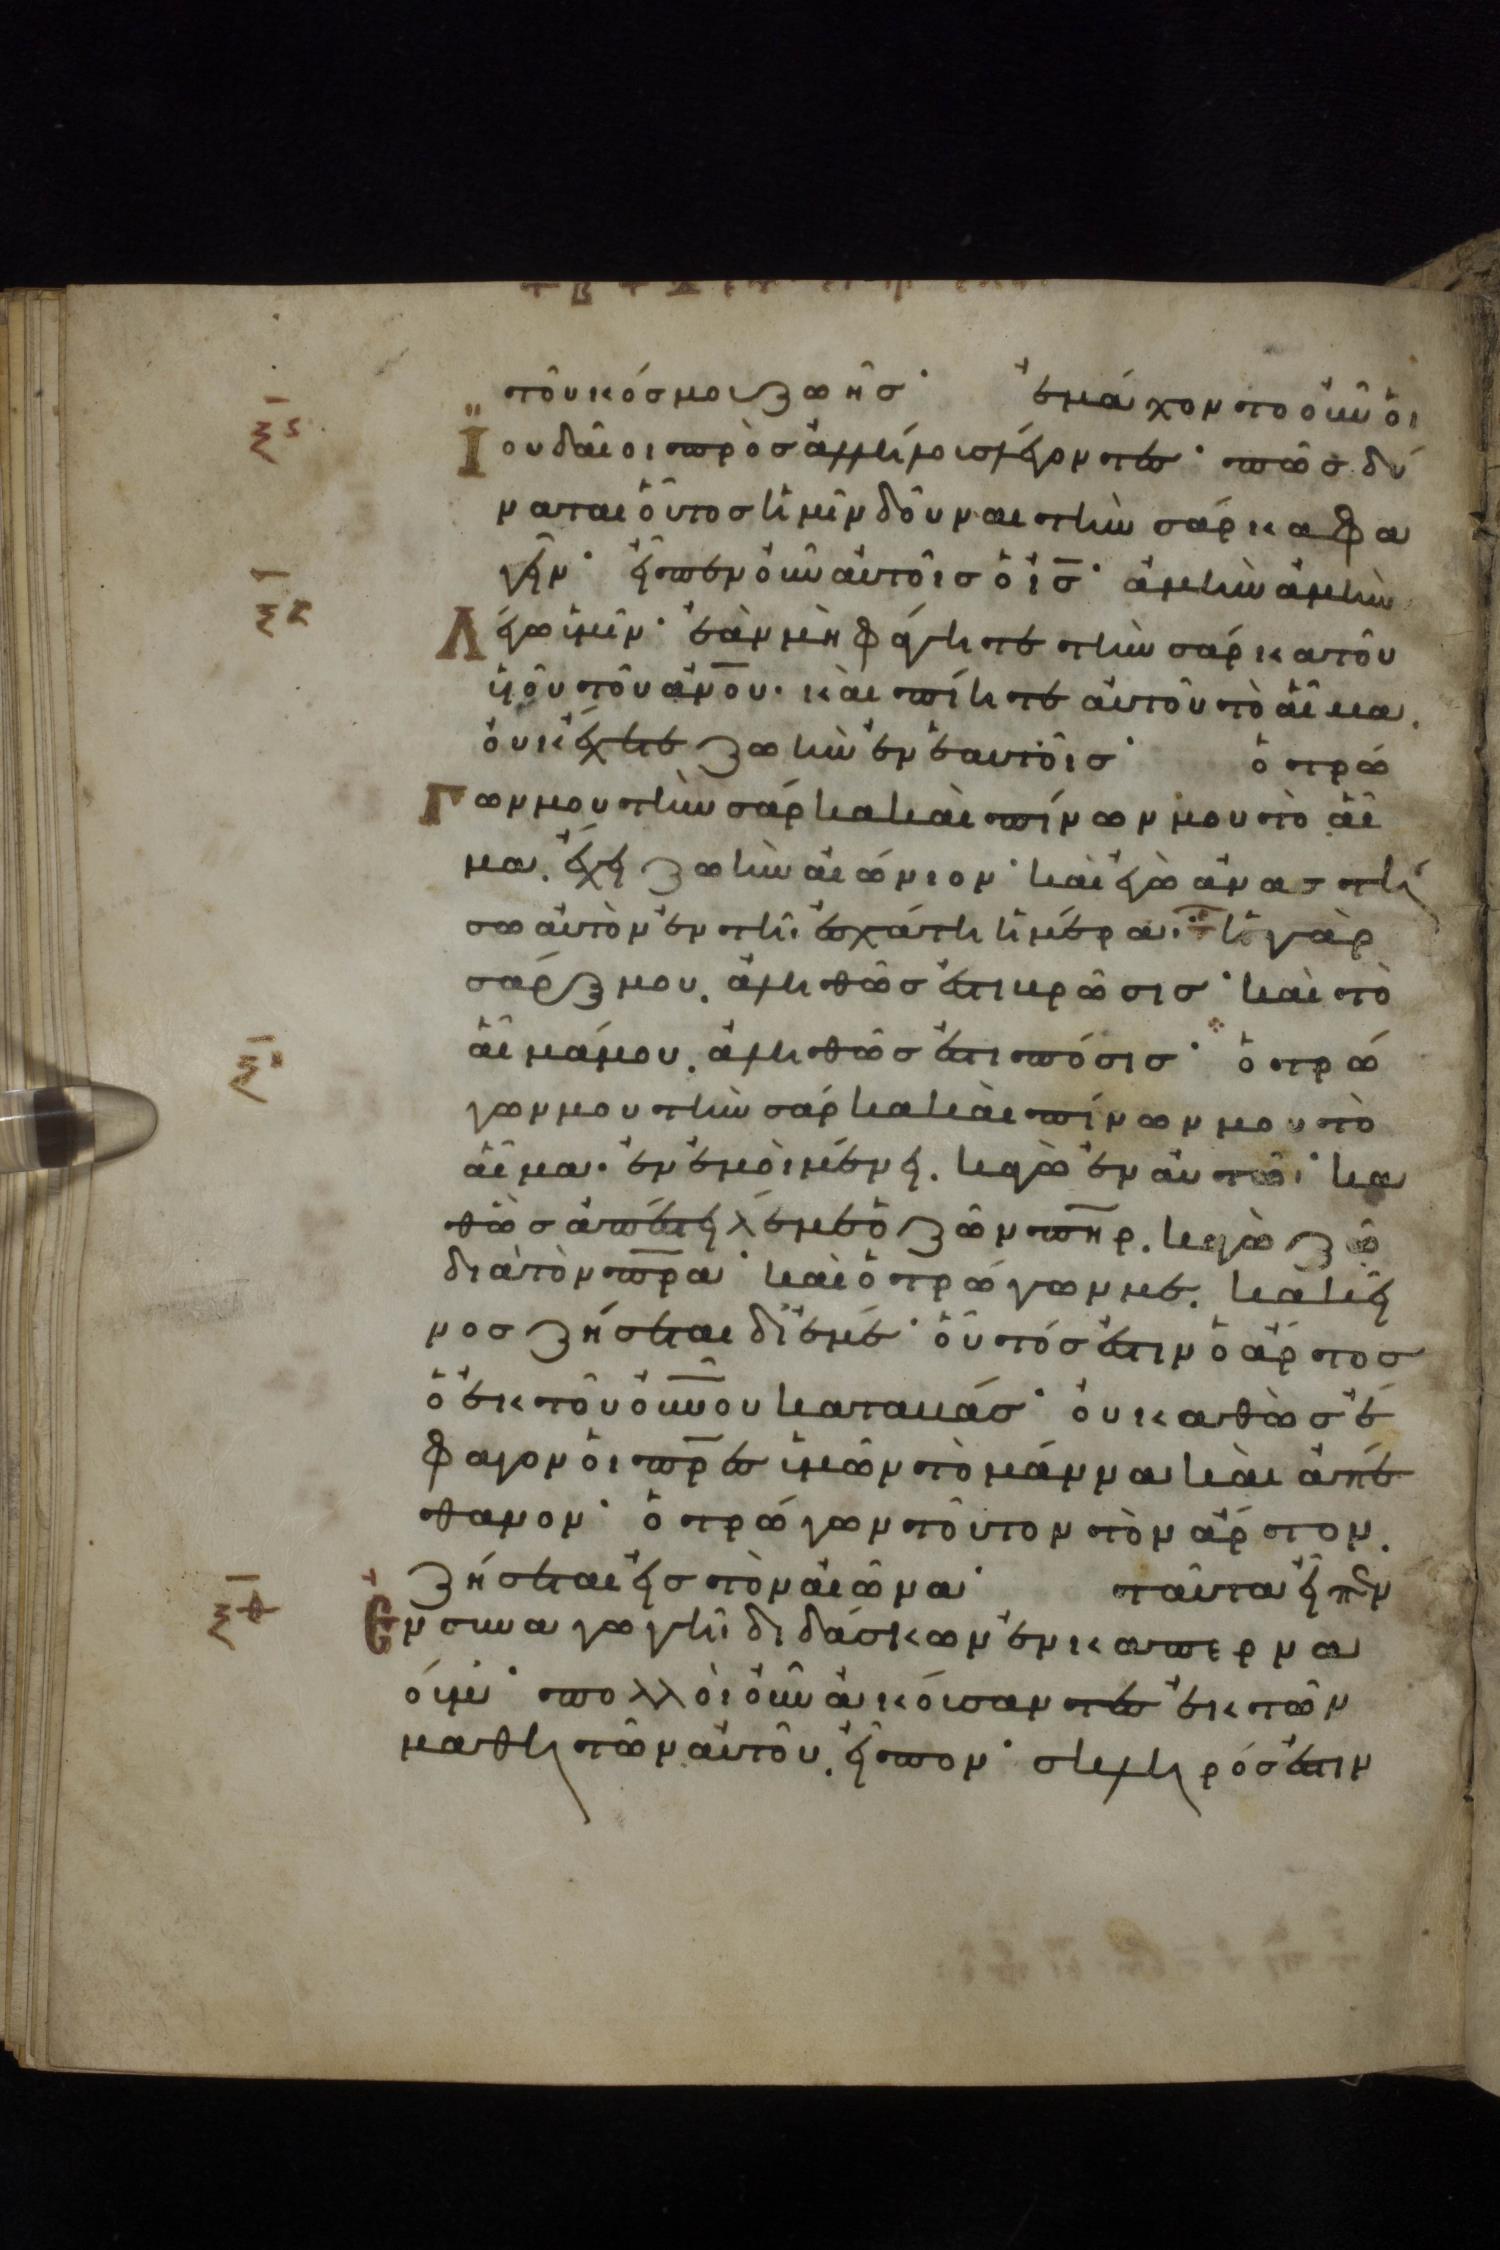 τοῦ κόσμου ζωῆσ· ἐμάχοντο οὖν ὁι
Ϊουδαῖοι πρὸσ ἀλλήλουσ λέγοντεσ· πῶσ δύ
ναται οὗτοσ ἡμῖν δοῦναι τὴν σάρκα φα
γεῖν· εἶπεν οὖν αὐτοῖσ ὁ ισ̅· ἀμὴν ἀμὴν
Λέγω ὑμῖν· ἐὰν μὴ φάγητε τὴν σάρκα τοῦ
ὑιοῦ τοῦ ανο̅υ· καὶ πίητε αὐτοῦ τὸ αἷμα.
ὀυκ ἔχετε ζωὴν ἐν ἑαυτοῖσ· ὁ τρώ
Γων μου τὴν σάρκα καὶ πίνων μου τὸ αἷ
μα. ἔχει ζωὴν αἰώνιον· καὶ ἐγὼ ἀναστή
σω αὐτὸν ἐν τῆι ἐσχάτη ἡμέρα· ἡ γὰρ
σάρξ μου. ἀληθῶσ ἐστι βρῶσισ· καὶ τὸ
αἷμά μου. ἀληθῶσ ἐστι πόσισ· ὁ τρώ
γων μου τὴν σάρκα καὶ πίνων μου τὸ
αἷμα· ἐν ἐμοὶ μένει. κἀγὼ ἐν αὐτῶι· κα
θὼσ ἀπέστειλέ με ὁ ζῶν πη̅ρ. κἀγὼ ζῶ
διὰ τὸν πρ̅α· καὶ ὁ τρώγων με. κακεῖ
νοσ ζήσεται δι ἐμέ· οὗτόσ ἐστιν ὁ ἄρτοσ
ὁ ἐκ τοῦ ουν̅ου καταβάσ· ὀυ καθὼσ ἔ
φαγον ὁι πρ̅εσ ὑμῶν τὸ μάννα καὶ ἀπέ
θανον· ὁ τρώγων τοῦτον τὸν ἄρτον.
ζήσεται εἰσ τὸν αἰῶνα· ταῦτα εἶπεν
Εν συναγωγῆι διδάσκων ἐν καπερνα
ούμ· πολλοὶ οὖν ἀκούσαντεσ ἐκ τῶν
μαθητῶν αὐτοῦ. εἶπον· σκληρόσ ἐστιν